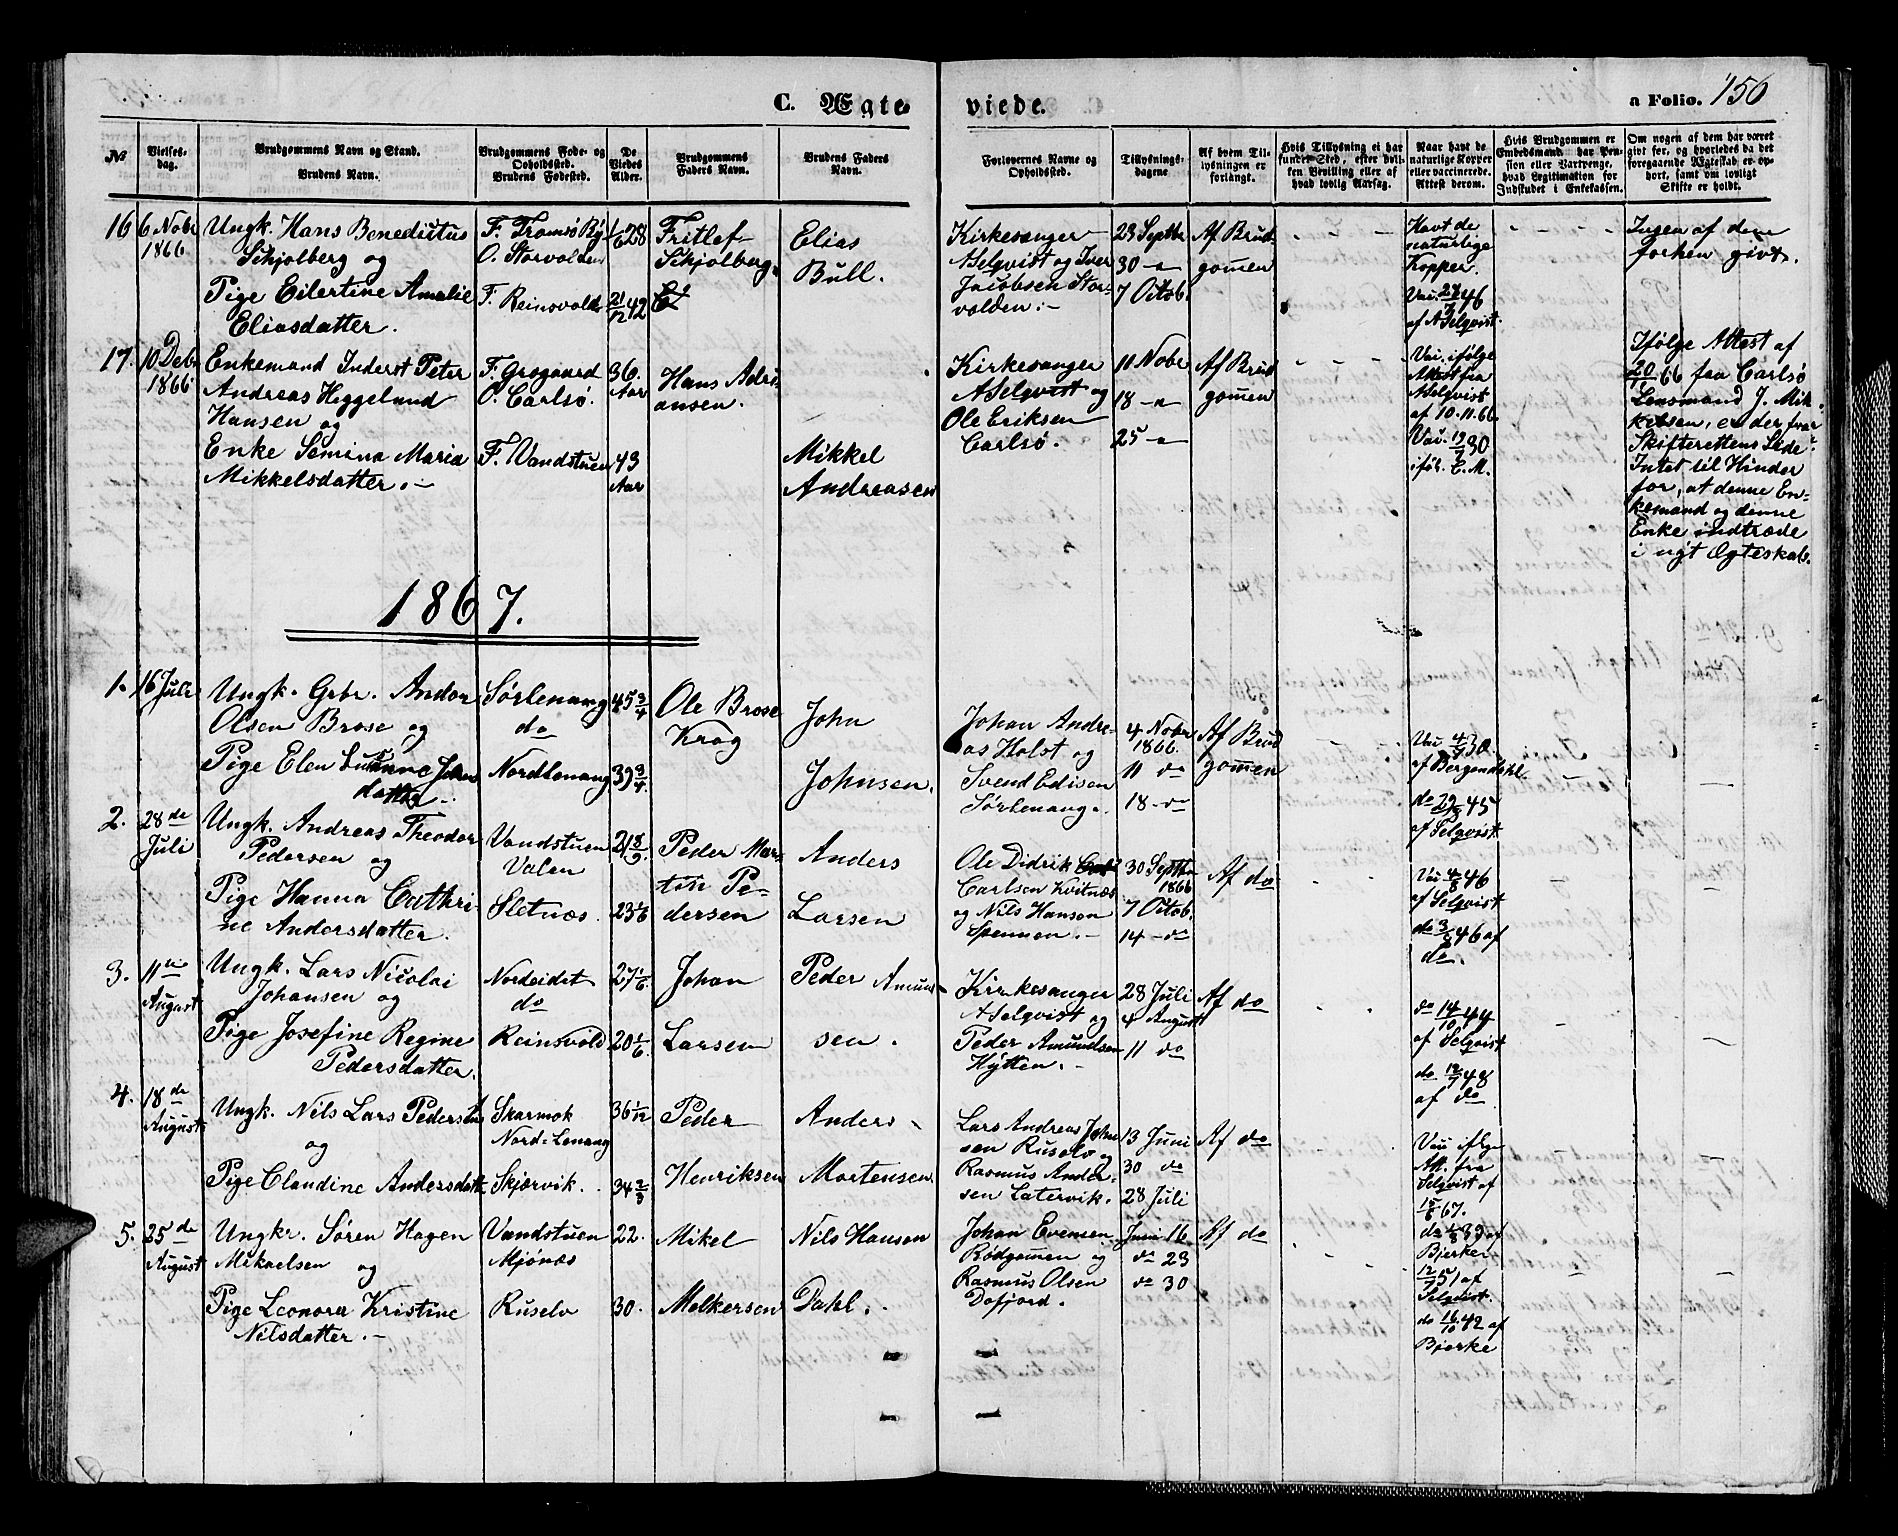 C. Ægteviede.
a Folio. 156
No
Vielses-dag.
Brudgommens Navn og Stand.
Brudens Navn.
Brudgommens Føde- og Opholdssted.
Brudens Fødested.
De Viedes Alder.
Brudgommens Faders Navn.
Brudens Faders Navn.
Forlovernes Navne og Opholdssted.
Tillysnings-dagene
Af hvem Tillysningen er forlangt.
Hvis Tillysning ei har fundet Sted, efter hvilken Bevilling eller af hvad lovlig Aarsag.
Naar havt de naturlige Kopper eller vaccinerede. Attest derom.
Hvis Brudgommen er Embedsmand har Pension eller Vartpenge, hvad Legitimation for Indskudet i Enkekassen.
Om nogen af dem har været givt før, og hvorledes da det foregaaende Ægteskab er ophørt, samt om lovligt Skifte er holdt.
16 6 Nobr 1866
Ungk. Hans Benedictus
Schjolberg og
Pige Eilertine Amalie
Eliasdatter.
F. Tromsø By
O. Storvolden
F. Reinsvold
28
21/12 42
Fritlef
Schjolberg
Elias
Bull.
Kirkesanger
A Selqvist og Iver
Jacobsen Stor-
volden.
23 Septbr
30 -
7 Octob.
Af Brud-
gomen
Havt de
naturlige
Kopper.
46
af A Selqvist.
Ingen af dem
forhen givt.
17. 10 Deb. 1866
Enkemand Inderst Peter
Andreas Heggelund
Hansen og
Enke Semina Maria
Mikkelsdatter.
F. Grogaard
O. Carlsø.
F. Vandstuen
36. Aar
43 Aar
Hans Adri-
ansen.
Mikkel
Andreasen
Kirkesanger
A Selqvist og
Ole Eriksen
Carlsø.
11 Nobr
18 -
25 -
Af Brud
gomen
Vai. ifølge
Attest fra
A Selqvist
af 10.11.66
Vai. 30
Ifølge Attest af
66 fra Carlsø
Lensmand J. Mik-
kelsen, er der fra
Skifterettens Side
Intet til Hinder
for, at denne En-
kemand og denne
Enke indtræde
i nyt Ægteskab.
1867.
1. 16 Juli
Ungk. Gbr. Andor
Olsen Brose og
Pige Elen Susanne John
datter.
Sørlenang
do
Nordlenang
45 3/4
39 3/4
Ole Brose
Krog
John
Johnsen.
Johan Andre-
as Holst og
Svend Edisen
Sørlenang.
4 Nobr 1866.
11 do
18 - do
Af Brud
gomen
Vai 30
af Bergendahl.
do 45
af Selqvist.
2. 28de Juli
Ungk. Andreas Theodor
Pedersen og
Pige Hanna Cathri-
ne Andersdatter.
Vandstuen
Valen
Sletnæs
21 8/9.
23 1/6
Peder Mar-
tin Pe-
dersen
Anders
Larsen
Ole Didrik
Carlsen Kvitnæs
og Nils Hansen
Spennen.
30 Septbr 1866
7 Octob.
14 - do
Af do
Vai 46
af Selqvist
do 46 af
do.
3. 11te August
Ungk. Lars Nicolai
Johansen og
Pige Josefine Regine
Pedersdatter.
Nordeidet
do
Reinsvold
27 1/6
20 1/6.
Johan
Larsen
Peder Amund-
sen.
Kirkesanger
A Selqvist og
Peder Amundsen
Hytten.
28 Juli
4 August
11 do
Af do
do 14/10 44
af Selqvist
do 12/7 48
af do
4. 18de August
Ungk. Nils Lars Pedersen
og
Pige Claudine Andersdatt
Skarmok
Nord-Lenang
Skjærvik.
36 1/12
34 2/3
Peder
Henriksen
Anders
Mortensen
Lars Andreas John
sen Ruselv og
Rasmus Ander-
sen Latervik.
13 Juni
30 do
28 Juli
Af do
Vai iflge
Att. fra
Selqvist af
67.
5. 25de August
Ungkr. Søren Hagen
Mikaelsen og
Pige Leonora Kristine
Nilsdatter.
Vandstuen
Mjønæs
Ruselv
22.
30.
Mikel
Melkersen
Nils Hansen
Dahl.
Johan Evensen
Rødgamen og
Rasmus Olsen
Dafjord.
Juni 16
do 23
do 30
Af do
do 39 af
Bjerke
12/7 51 af
Selqvist.
do 16/10 42 af
Bjerke